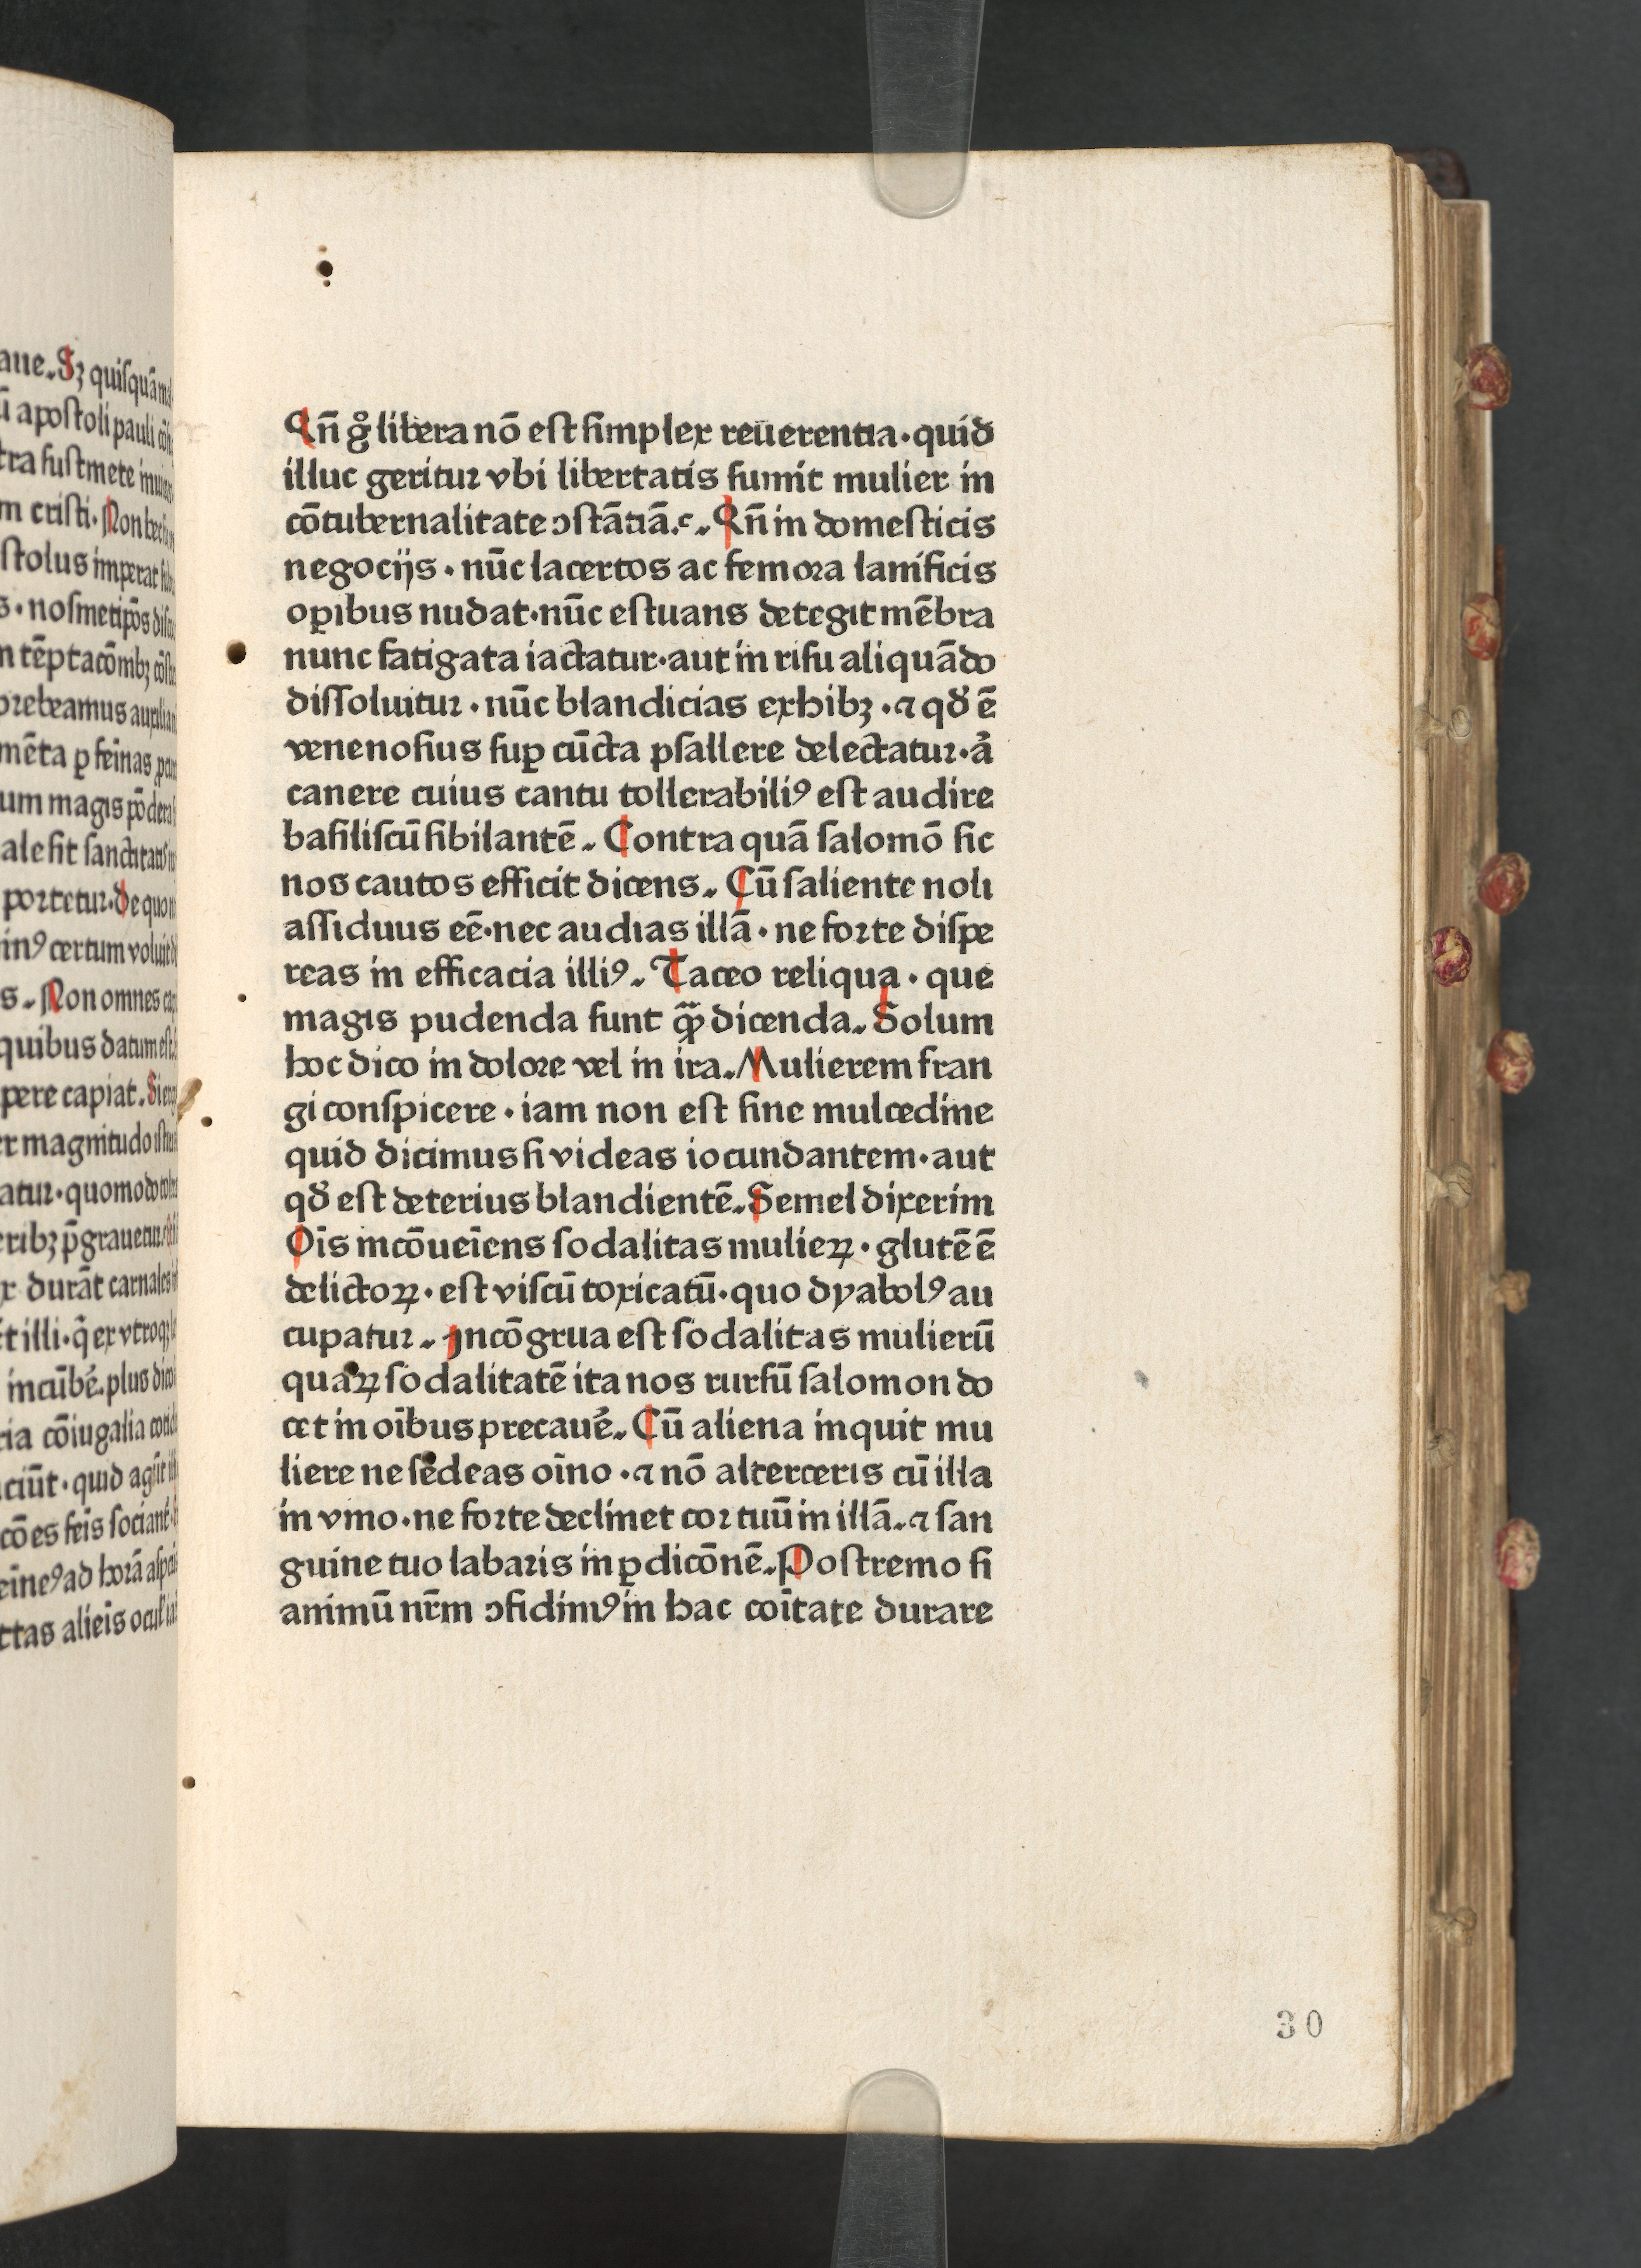 aue. Sꝫ quiſquā
ū apoſtoli pauli
tra fuſtmete
m criſti. Non
ſtolus imperat
s. noſmetip̄os
n tēptacōnibꝫ
prebeamus
mēta ꝑ feīnas
um magis
ale ſit ſanctitatis
portetur. de quo
inꝰ certum voluit
s. Non omnes
quibus datum eſt
pere capiat.
er magnitudo
atur. quomodo
eribꝫ p̄grauetur
r durāt carnales
t illi. q̄ ex vtroqꝫ
incūbē. plus
ria cōiugalia
ciūt. quid agūt
cōes feīs ſociant
eīneꝰ ad horā
ttas alieīs
Qn̄ g̊ libera nō eſt ſimplex reuerentia. quid
illuc geritur vbi libertatis ſumit mulier in
cōtubernalitate ↄſtātiā.ꝰ. Qn̄ in domeſticis
negocijs. nūc lacertos ac femora lanificis
oꝑibus nudat. nūc eſtuans detegit mēbra
nunc fatigata iactatur. aut in riſu aliquādo
diſſoluitur. nūc blandicias exhibꝫ. ⁊ qđ ē
venenoſius ſuꝑ cūcta pſallere delectatur. ā
canere cuius cantu tollerabiliꝰ eſt audire
baſiliſcū ſibilantē. Contra quā ſalomō ſic
nos cautos efficit dicens. Cū ſaliente noli
aſſiduus eē. nec audias illā. ne forte diſpe
reas in efficacia illiꝰ. Taceo reliqua. que
magis pudenda ſunt ꝙ̄ dicenda. Solum
hoc dico in dolore vel in ira. Mulierem fran
gi conſpicere. iam non eſt ſine mulcedine
quid dicimus ſi videas iocundantem. aut
qđ eſt deterius blandientē. Semel dixerim
Oīs incōueīens ſodalitas mulieꝝ. glutē ē
delictoꝝ. eſt viſcū toxicatū. quo dyabolꝰ au
cupatur. Incōgrua eſt ſodalitas mulierū
quaꝝ ſodalitatē ita nos rurſū ſalomon do
cet in oībus precauē. Cū aliena inquit mu
liere ne ſedeas oīno. ⁊ nō alterceris cū illa
in vino. ne forte declinet cor tuū in illā. ⁊ ſan
guine tuo labaris in ꝑdicōnē. Poſtremo ſi
animū nr̄m ↄfidimꝰ in hac coītate durare
30